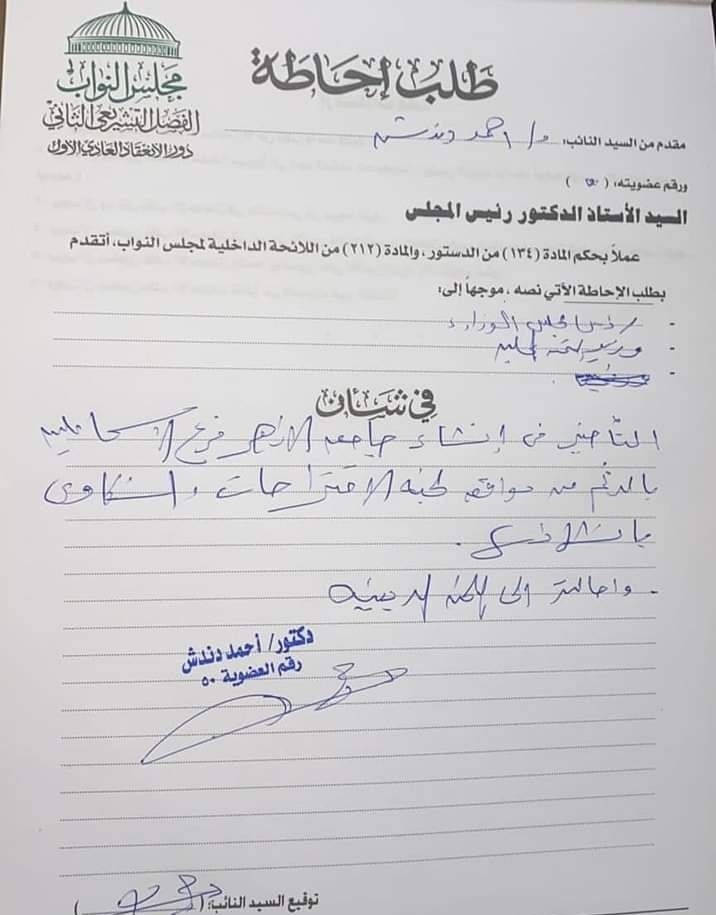 مجلس النواب
الفصل التشريعي الثاني
دور الانعقاد العادي الأول
طلب إحاطة
مقدم من السيد النائب: د/ احمد دندش
ورقم عضويته: ( ٥٠ )
السيد الأستاذ الدكتور رئيس المجلس
عملاً بحكم المادة (١٣٤) من الدستور، والمادة (٢١٢) من اللائحة الداخلية لمجلس النواب، أتقدم
بطلب الإحاطة الأتي نصه، موجهاً إلى:
- رئيس مجلس الوزراء
- وزير التنمية المحلية
-
في شأن
التأخير في إنشاء جامعه الازهر فرع الاسماعيلية
بالرغم من موافقه لجنه الاقتراحات والشكاوى
. واحالته الى اللجنه الدينيه
دكتور/ أحمد دندش
رقم العضوية ٥٠
توقيع السيد النائب: (